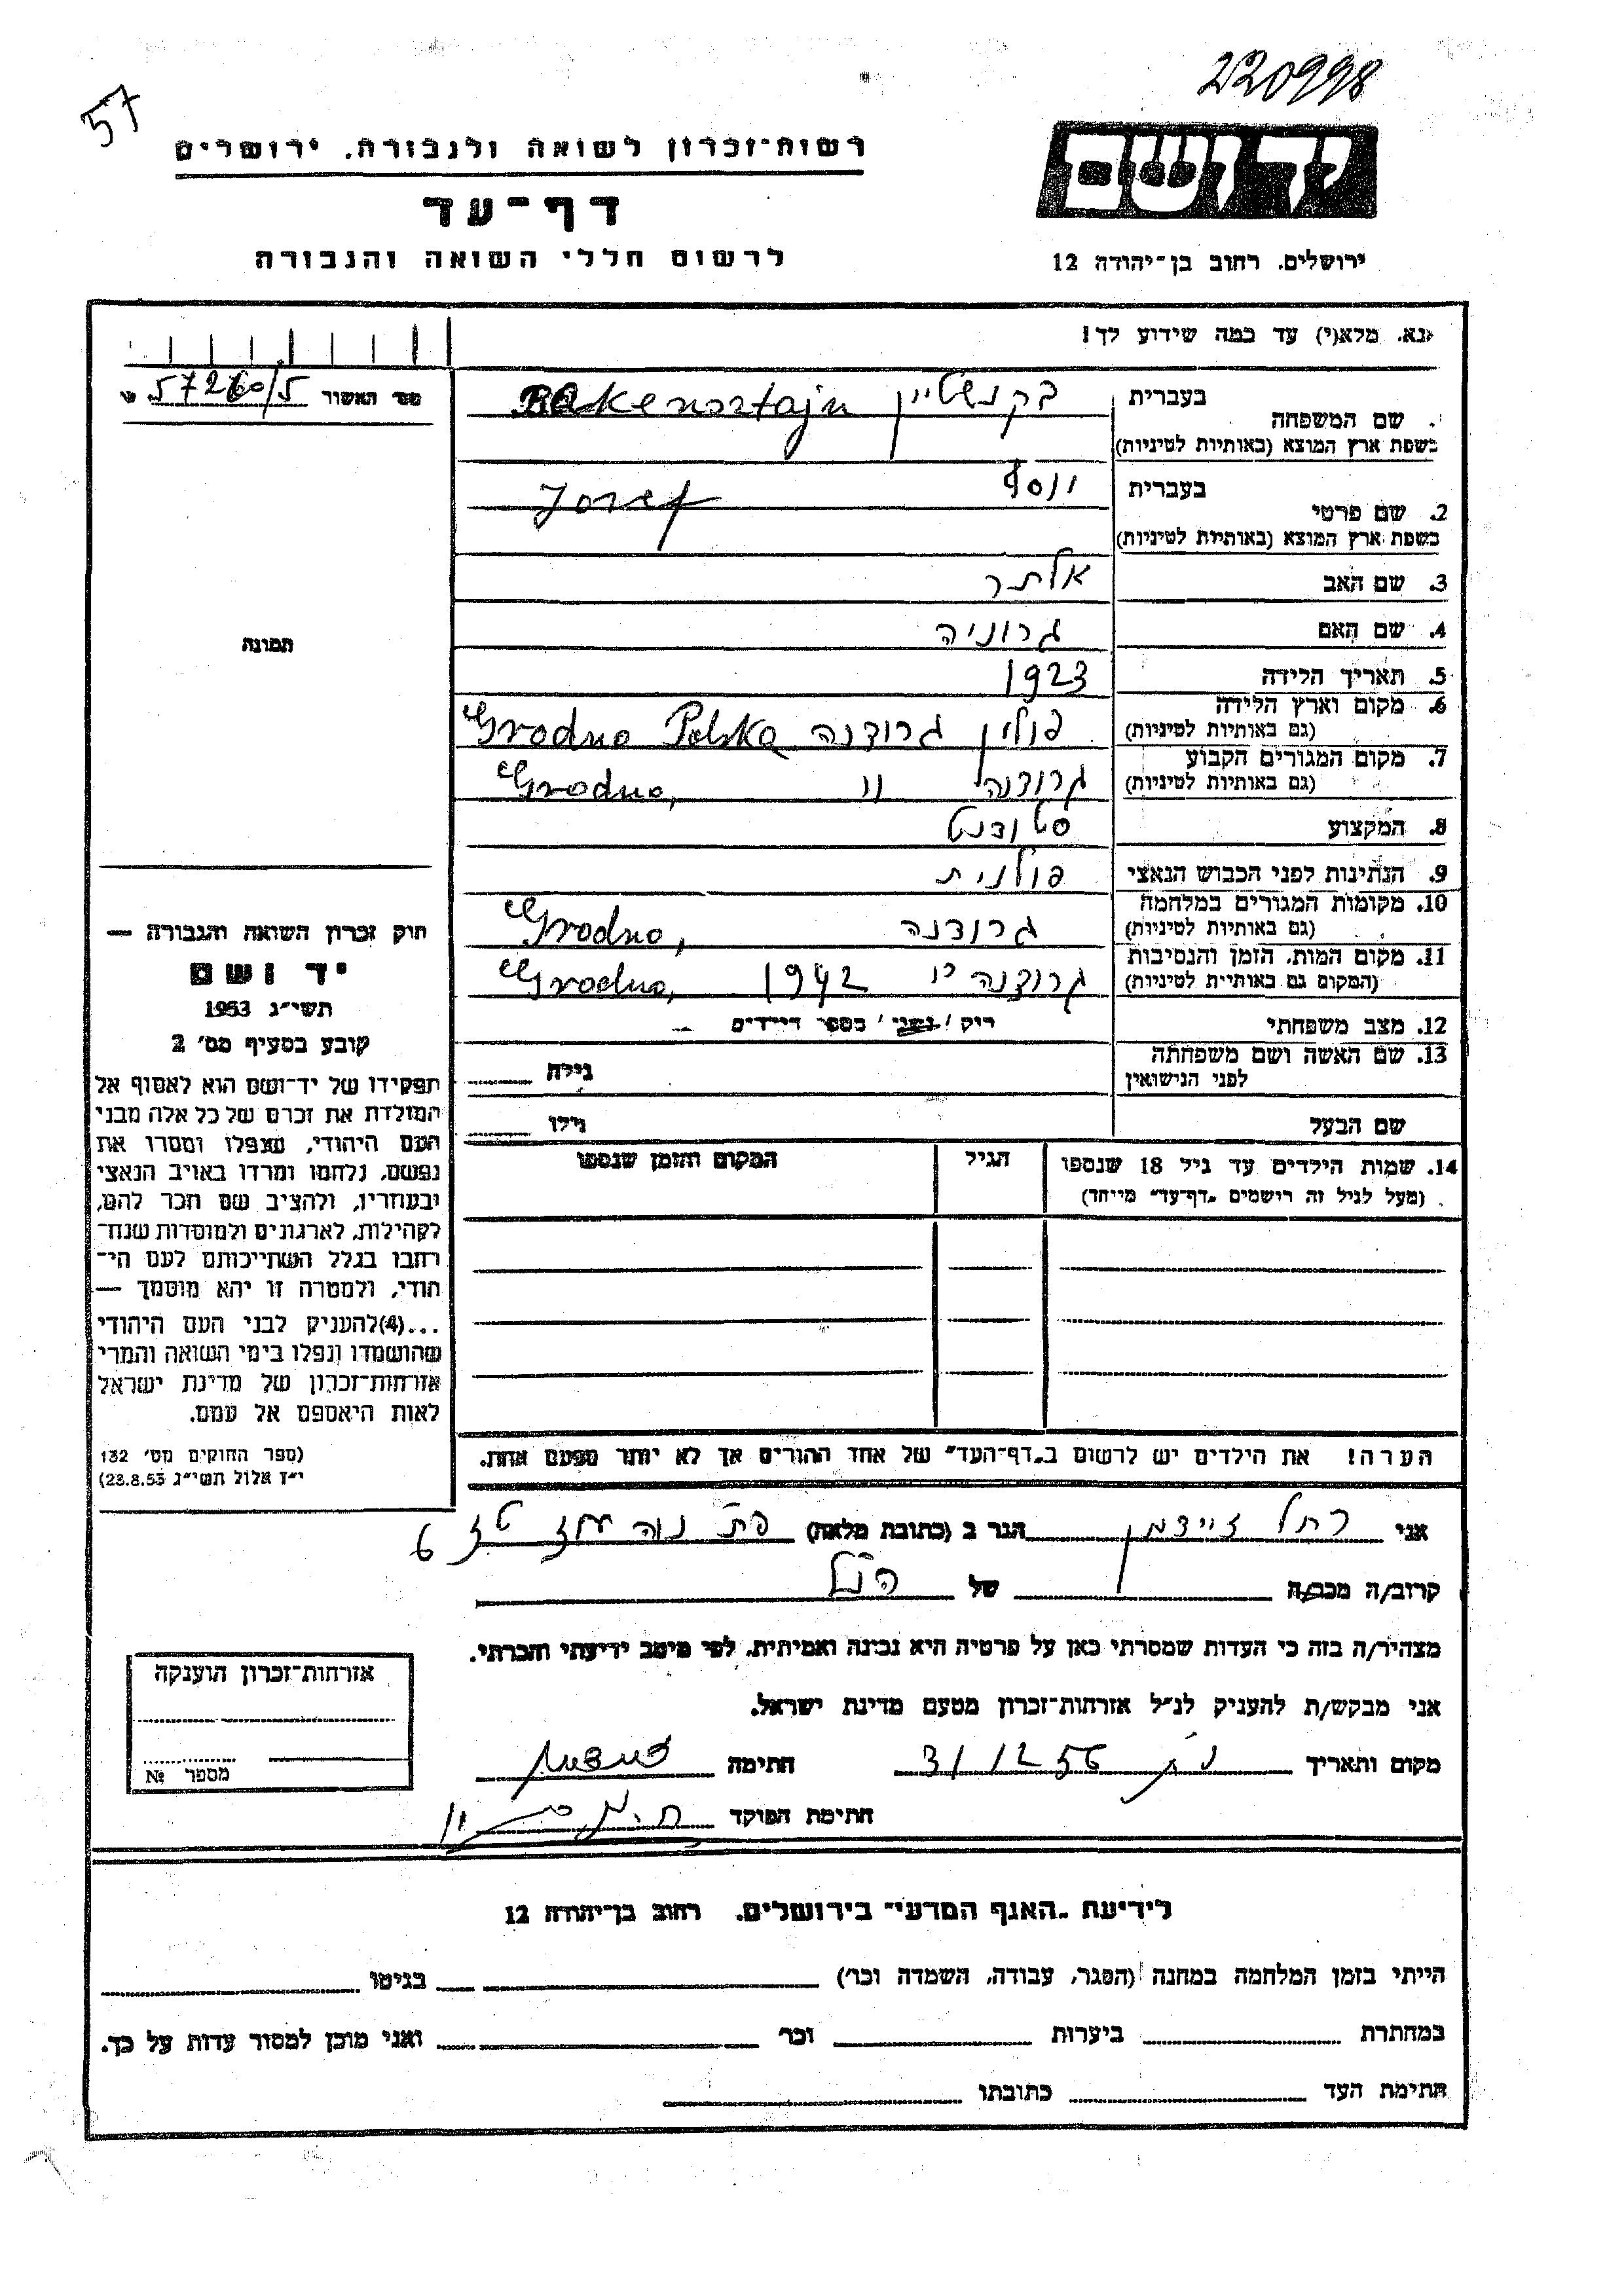 220998
57
יד ושם
רשות־זכרון לשואה ולגבורה. ירושלים
דף־עד
לרשום חללי השואה והגבורה
ירושלים. רחוב בן־יהודה 12
נא. מלא(י) עד כמה שידוע לך!
מס׳ האשור 57260/5
בעברית בקנשטיין Bakensztajn
שם המשפחה
בשפת ארץ המוצא (באותיות לטיניות)
בעברית יוסף Josef
2. שם פרטי
בשפת ארץ המוצא (באותיות לטיניות)
3. שם האב אלתר
4. שם האם גרוניה
תמונה
5. תאריך הלידה 1923
6. מקום וארץ הלידה פולין גרודנה Grodno Polska
(גם באותיות לטיניות)
7. מקום המגורים הקבוע גרודנה " Grodno,
(גם באותיות לטיניות)
8. המקצוע סטודנט
9. הנתינות לפני הכבוש הנאצי פולנית
10. מקומות המגורים במלחמה גרודנה Grodno,
(גם באותיות לטיניות)
11. מקום המות. הזמן והנסיבות גרודנה 1942 Grodno,
(המקום גם באותיות לטיניות)
12. מצב משפחתי רוק / נשוי / מספר הילדים
13. שם האשה ושם משפחתה גילה
לפני הנישואין
שם הבעל גילו
14. שמות הילדים עד גיל 18 שנספו הגיל המקום והזמן שנספו
(מעל לגיל זה רישמים „דף־עד״ מייחד)
הערה! את הילדים יש לרשום ב„דף־העד״ של אחד ההורים אך לא יותר מפעם אחת.
חוק זכרון השואה והגבורה —
יד ושם
תשי״ג 1953
קובע בסעיף מס׳ 2
תפקידו של יד־ושם הוא לאסוף אל
המולדת את זכרם של כל אלה מבני
העם היהודי, שנפלו ומסרו את
נפשם, נלחמו ומרדו באויב הנאצי
ובעוזריו, ולהציב שם וזכר להם,
לקהילות, לארגונים ולמוסדות שנח־
רבו בגלל השתייכותם לעם הי־
הודי, ולמטרה זו יהא מוסמך —
...(4)להעניק לבני העם היהודי
שהושמדו ונפלו בימי השואה והמרי
אזרחות־זכרון של מדינת ישראל
לאות היאספם אל עמם.
(ספר החוקים מס׳ 132
י״ז אלול תשי״ג 23.8.53)
אני רחל זיידמן הגר ב (כתובת מלאה) פת נוה עוז
קרוב/ה מכר/ה של הנ״ל
מצהיר/ה בזה כי העדות שמסרתי כאן על פרטיה היא נכונה ואמיתית. לפי מיטב ידיעתי והכרתי.
אני מבקש/ת להעניק לנ״ל אזרחות־זכרון מטעם מדינת ישראל.
מקום ותאריך 31/12 56 חתימה
חתימת הפוקד
אזרחות־זכרון הוענקה
מספר №
לידיעת „האגף המדעי״ בירושלים. רחוב בן־יהודה 12
הייתי בזמן המלחמה במחנה (הסגר, עבודה, השמדה וכו׳) בגיטו
במחתרת ביערות וכו׳ ואני מוכן למסור עדות על כך.
חתימת העד כתובתו